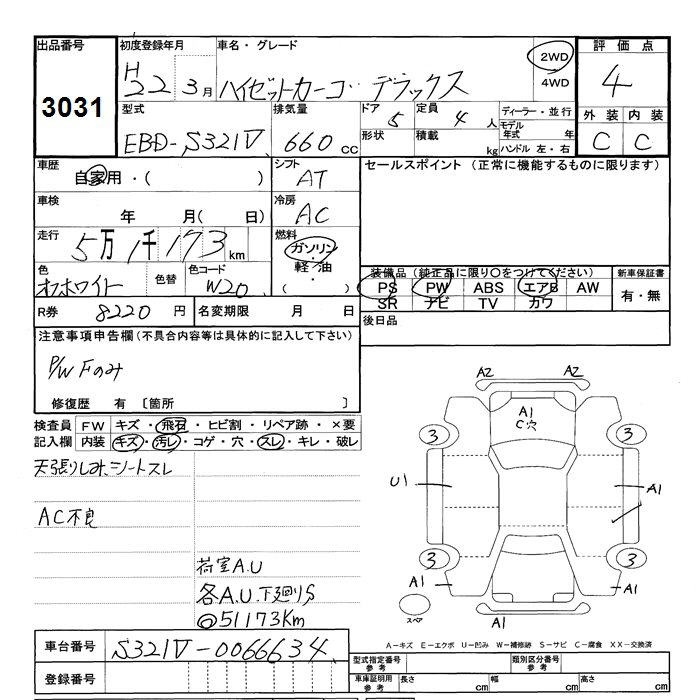 出品番号 初度登録年月 車名・グレード 評価点
3031 H22 3月 ハイゼットカーゴ デラックス 2WD 4WD 4
型式 排気量 ドア 5 定員 4人 ディーラー・並行 外装 内装
EBD-S321V 660cc 形状 積載 kg モデル年式 年 ハンドル 左・右 C C
車歴 シフト セールスポイント (正常に機能するものに限ります)
自家用・( ) AT
車検 冷房
年 月( 日) AC
走行 燃料
5万1千173km ガソリン・軽・油・( )
色 色替 色コード 装備品 (純正品に限り〇をつけてください) 新車保証書
オフホワイト W20 PS PW ABS エアB AW 有・無
SR ナビ TV カワ
R券 8220円 名変期限 月 日 後日品
注意事項申告欄(不具合内容等は具体的に記入して下さい)
P/W Fのみ
修復歴 有 〔箇所 〕
検査員 FW キズ・飛石・ヒビ割・リペア跡・×要
記入欄 内装 キズ・汚レ・コゲ・穴・スレ・キレ・破レ
天張りしみ、シートスレ
AC不良
荷室A.U
各A.U.下廻りS
@51173Km
A2 A2
A1
C穴
3 3
U1 A1
3 3
A1 A1
スペア A1
A-キズ E-エクボ U-凹み W-補修跡 S-サビ C-腐食 XX-交換済
車台番号 S321V-0066634 型式指定番号 参考 類別区分番号 参考
登録番号 車庫証明用 参考 長さ cm 幅 cm 高さ cm